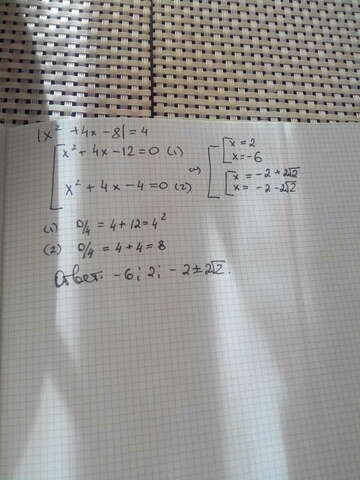 |x² + 4x - 8| = 4
[ x² + 4x - 12 = 0 (1)
x² + 4x - 4 = 0 (2)
⇔ [ [ x = 2
x = -6
[ x = -2 + 2√2
x = -2 - 2√2
(1) D/4 = 4 + 12 = 4²
(2) D/4 = 4 + 4 = 8
Ответ: -6; 2; -2 ± 2√2.